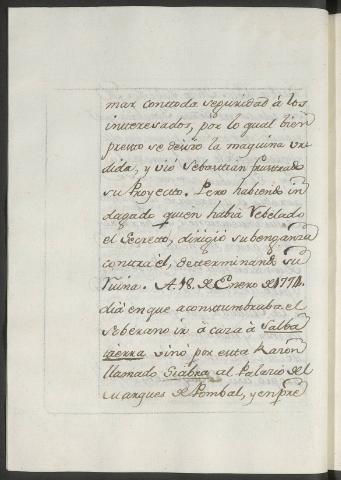 mar con toda seguridad à los
interesados, por lo qual bien
presto se deshizo la maquina ur-
dida, y viò Sebastian frustrado
su Proyecto. Pero habiendo in-
dagado quien habia Rebelado
el Secreto, dirigiò su benganza
contra èl, determinando su
Ruina. A 18. de Enero de 1774.
dia en que acostumbraba el
Soberano ir à caza à Salba
tierra vino por esta Razon
llamado Siabra al Palacio del
Marques de Pombal, y en pre